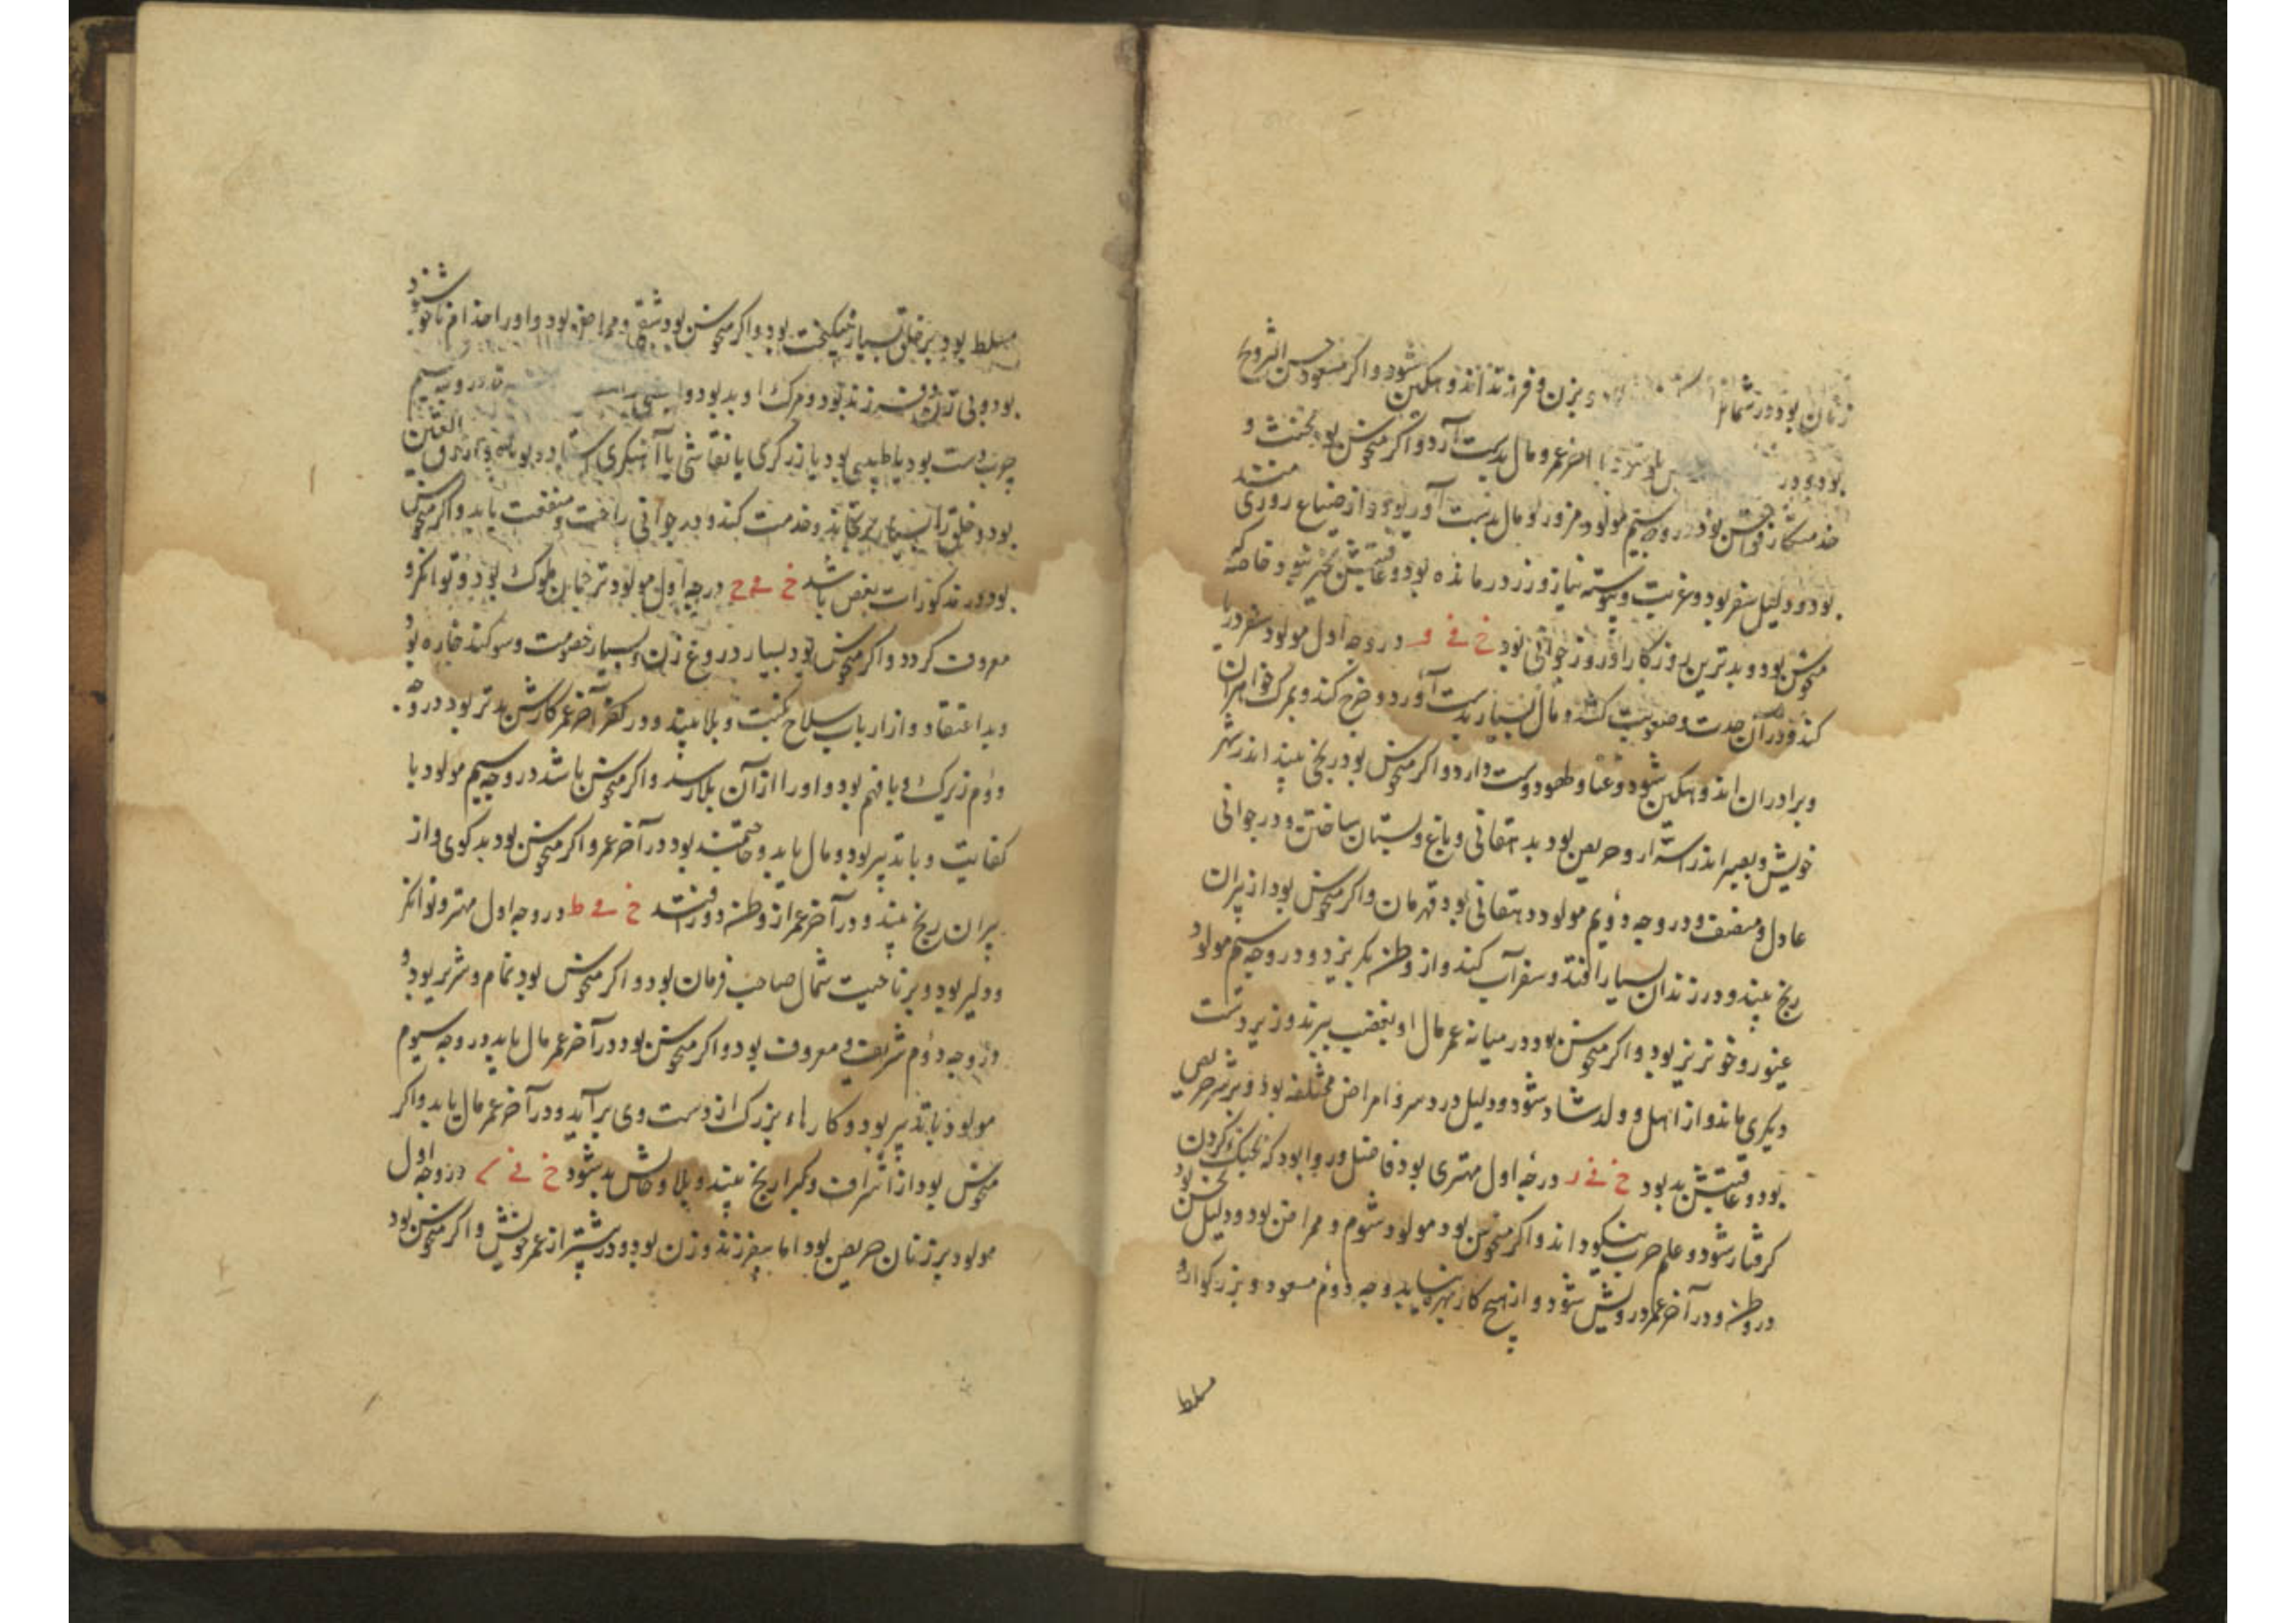 زنان بود و در شمار و بزن و فرزند اندوهکین شود و اکر مسعود حسن الترویج
بود و در آخر عمر مال بدست آرد و اکر منحوس بود مخنث و
خدمتکار فواحش بود در وجه سیم مولود مزور بود مال بدست آورد و از ضیاع روزی مستمند
بود و دلیل سفر بود و غربت و پیوسته نیازورز درمانده بود و عاقبتش بخیر شود خاصه که
منحوس بود و بدترین روزکار او روز جوانی بود خ فے و در وجه اول مولود سفر دریا
کند و در آن حدت و صعوبت کشد و مال بسیار بدست آورد و خرج کند و بمرک خواهران
و برادران اندوهکین شود و غنا و طهو دوست دارد و اکر منحوس بود رنجی بیند اندر شهر
خویش و بصیر اندر اسرار و حریص بود بدهقانی و باغ و بستان ساختن و در جوانی
عادل و منصف و در وجه دویم مولود دهقانی بود قهرمان و اکر منحوس بود از پیران
رنج بیند و در زندان بسیار افتد و سفر آب کند و از وطن بکریزد و در وجه سیم مولود
غیور و خونریز بود و اکر منحوس بود در میانه عمر مال او بغصب ببرند و زیردست
دیکری ماند و از اهل و ولد شاد شود و دلیل درد سر و امراض مختلفه بود و بر شر حریص
بود و عاقبتش بد بود خ فے ر در وجه اول مهتری بود فاضل و روا بود که بجنک کردن
کرفتار شود و علم حرب نیکو داند و اکر منحوس بود مولود شوم و ممراض بود و دلیل نحس بود
در وطن و در آخر عمر درویش شود و از هیچ کار بهره نیابد وجه دوم مسعود و بزرکوار و
مسلط
مسلط بود بر خلق بسیار نیکبخت بود و اکر منحوس بود شقی و ممراض بود و او را جذام ناخوش شود
بود و بی زن و فرزند بود و مرک او بد بود و در وجه سیم
چرب دست بود یا طبیبی بود یا زرکری یا نقاشی یا آهنکری استاد بود
بود و خلق را بسیار برنجاند و خدمت کند و در جوانی راحت و منفعت یابد و اکر منحوس
بود در مذکورات بغض باشد خ فے ح در وجه اول مولود ترجمان ملوک بود و توانکر و
معروف کردد و اکر منحوس بود بسیار دروغ زن و بسیار خصومت و سوکند خواره بود
و بد اعتقاد و از ارباب سلاح نکبت و بلا بیند و در آخر عمر کارش بدتر بود در وجه
دوم زیرک و با فهم بود و او را از آن بلا رسد و اکر منحوس باشد در وجه سیم مولود با
کفایت و با تدبیر بود و مال یابد و حشمتمند بود در آخر عمر و اکر منحوس بود بدکوی و از
پیران رنج بیند و در آخر عمر از وطن دور افتد خ فے ط در وجه اول مهتر و توانکر
و دلیر بود و بر ناحیت شمال صاحب فرمان بود و اکر منحوس بود نمام و شریر بود و
در وجه دوم شریف و معروف بود و اکر منحوس بود در آخر عمر مال یابد در وجه سیوم
مولود با تدبیر بود و کارهاء بزرک از دست وی برآید و در آخر عمر مال یابد و اکر
منحوس بود از اشراف و کبرا رنج بیند و بلا و حالش بد شود خ فے ے در وجه اول
مولود بر زنان حریص بود اما بیفرزند و زن بود و در بیشتر از عمر خویش و اکر منحوس بود